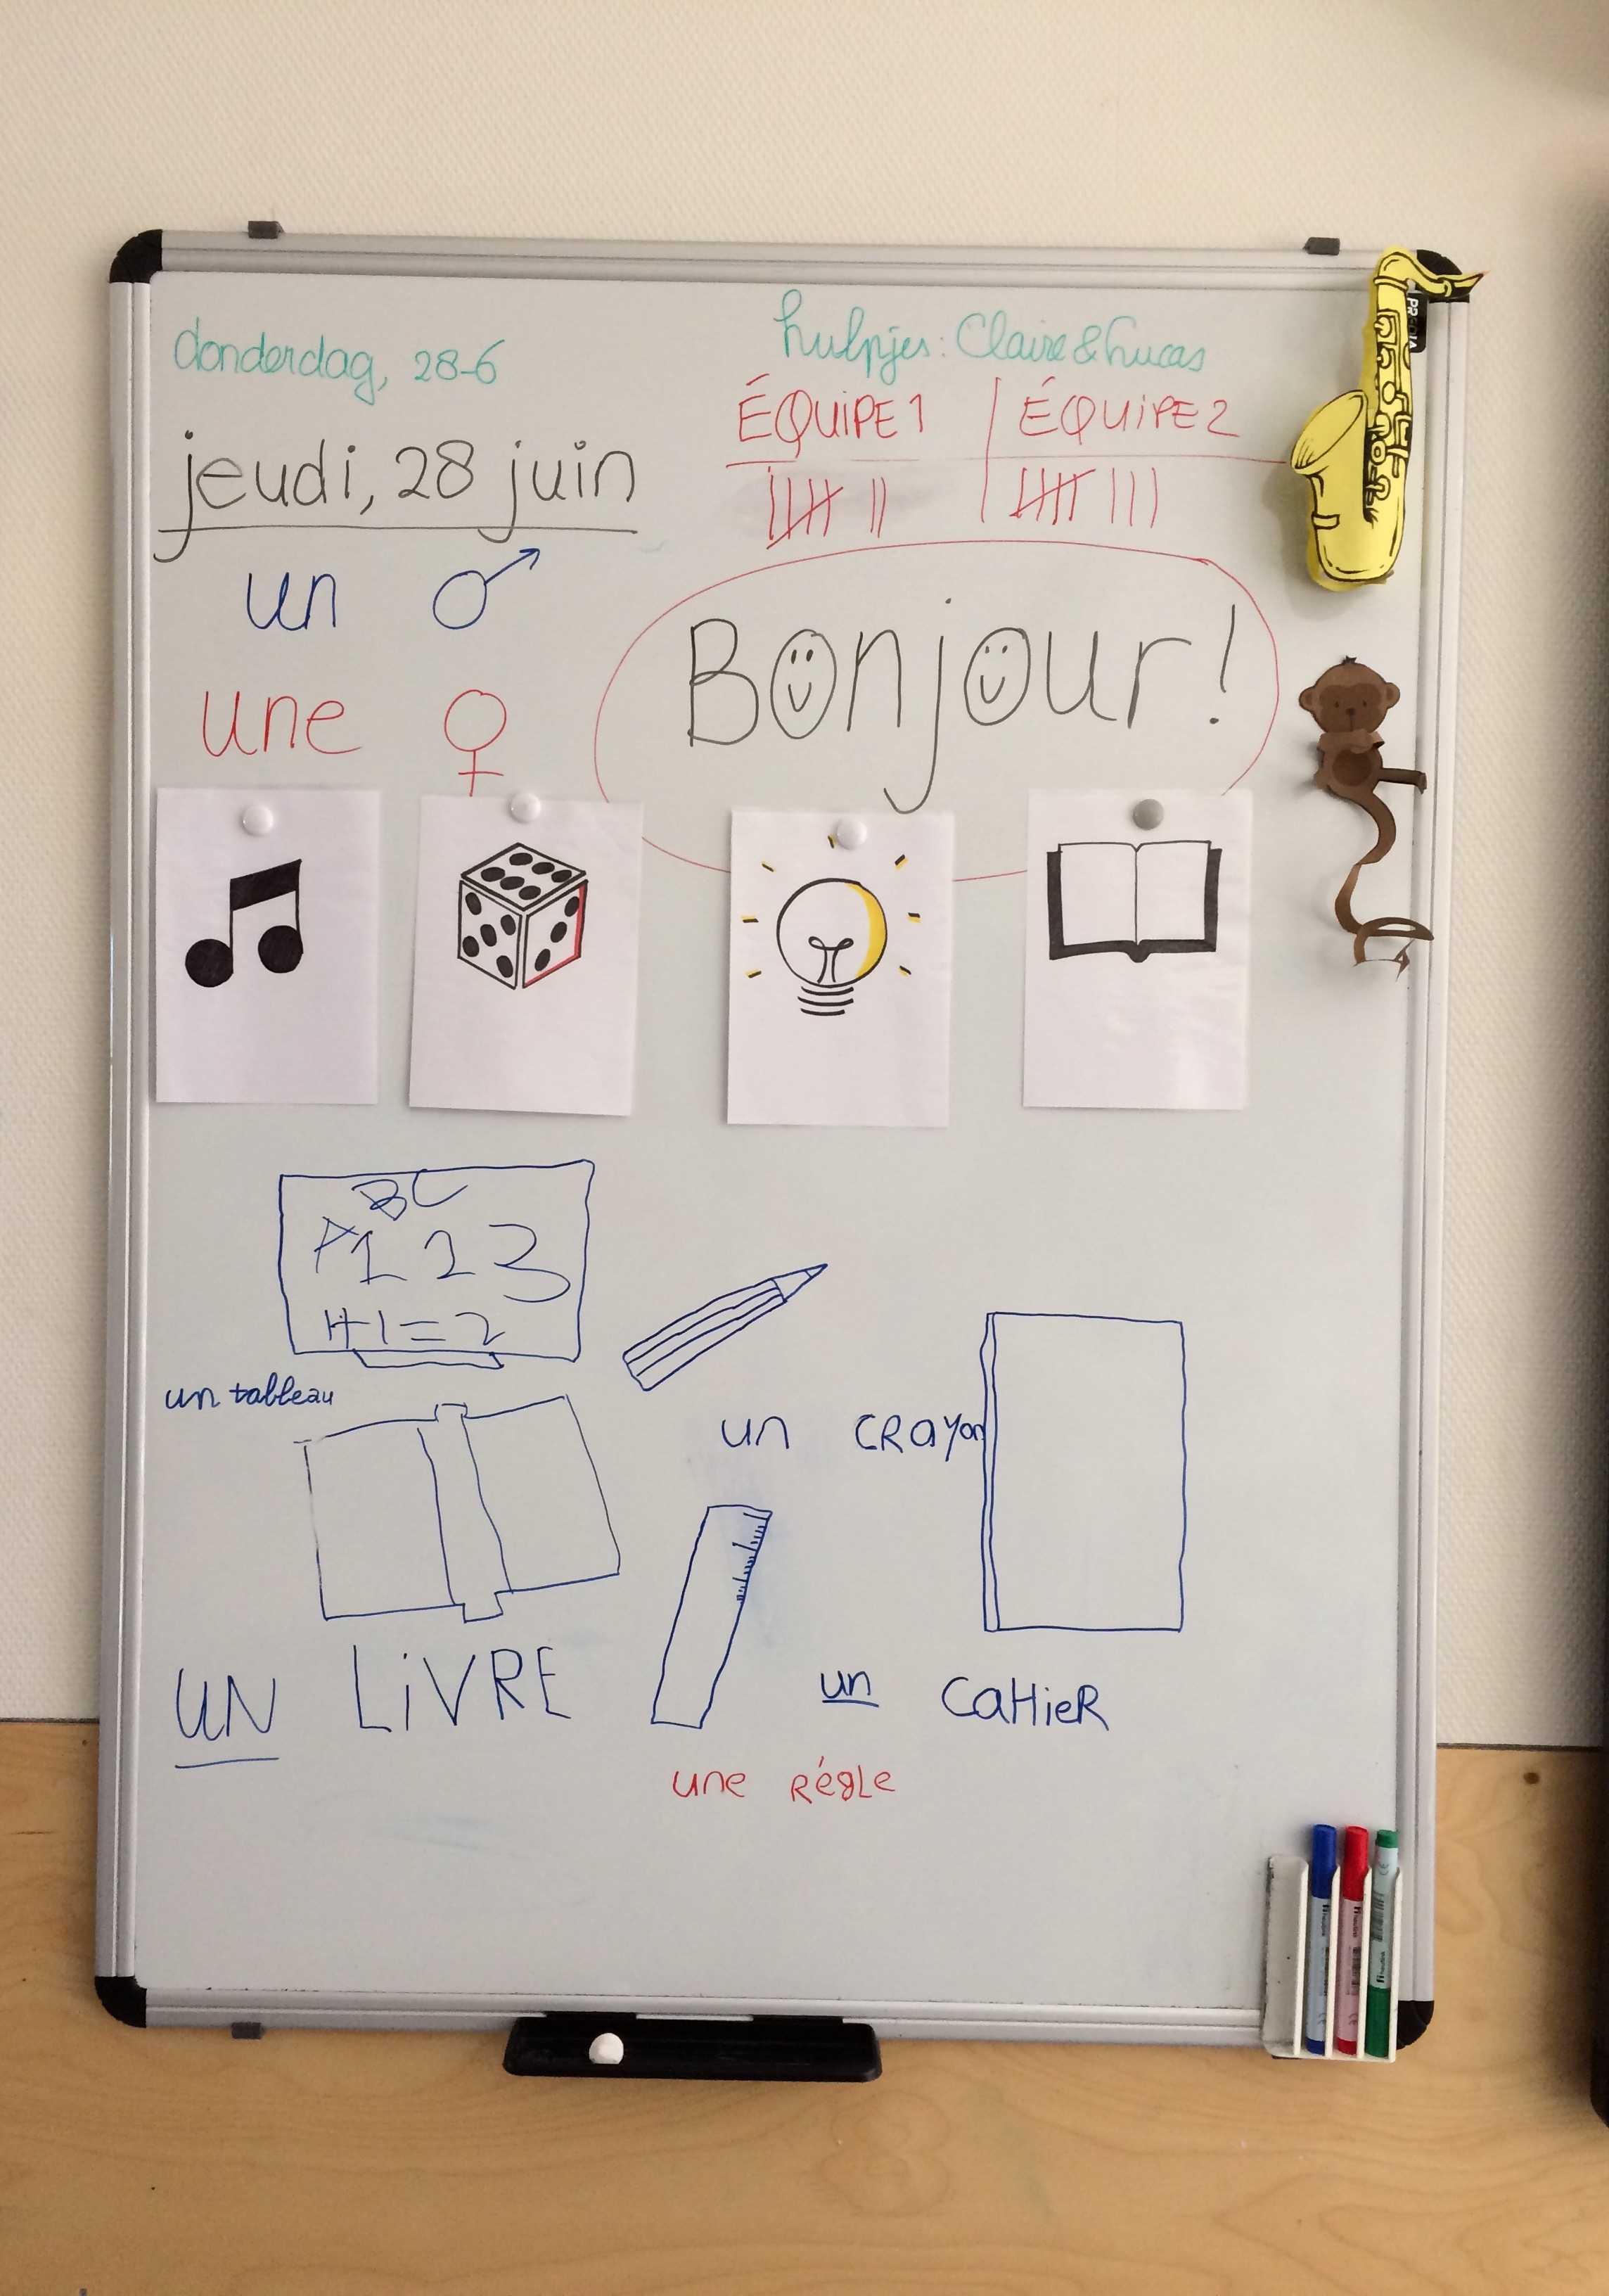 donderdag, 28-6
hulpjes: Claire & Lucas
ÉQUiPE 1 ÉQUiPE 2
jeudi, 28 juin
un ♂
Bonjour!
une ♀
BC
A1 2 3
1+1=2
un tableau
un CRayon
UN LiVRE
un CaHieR
une RégLe